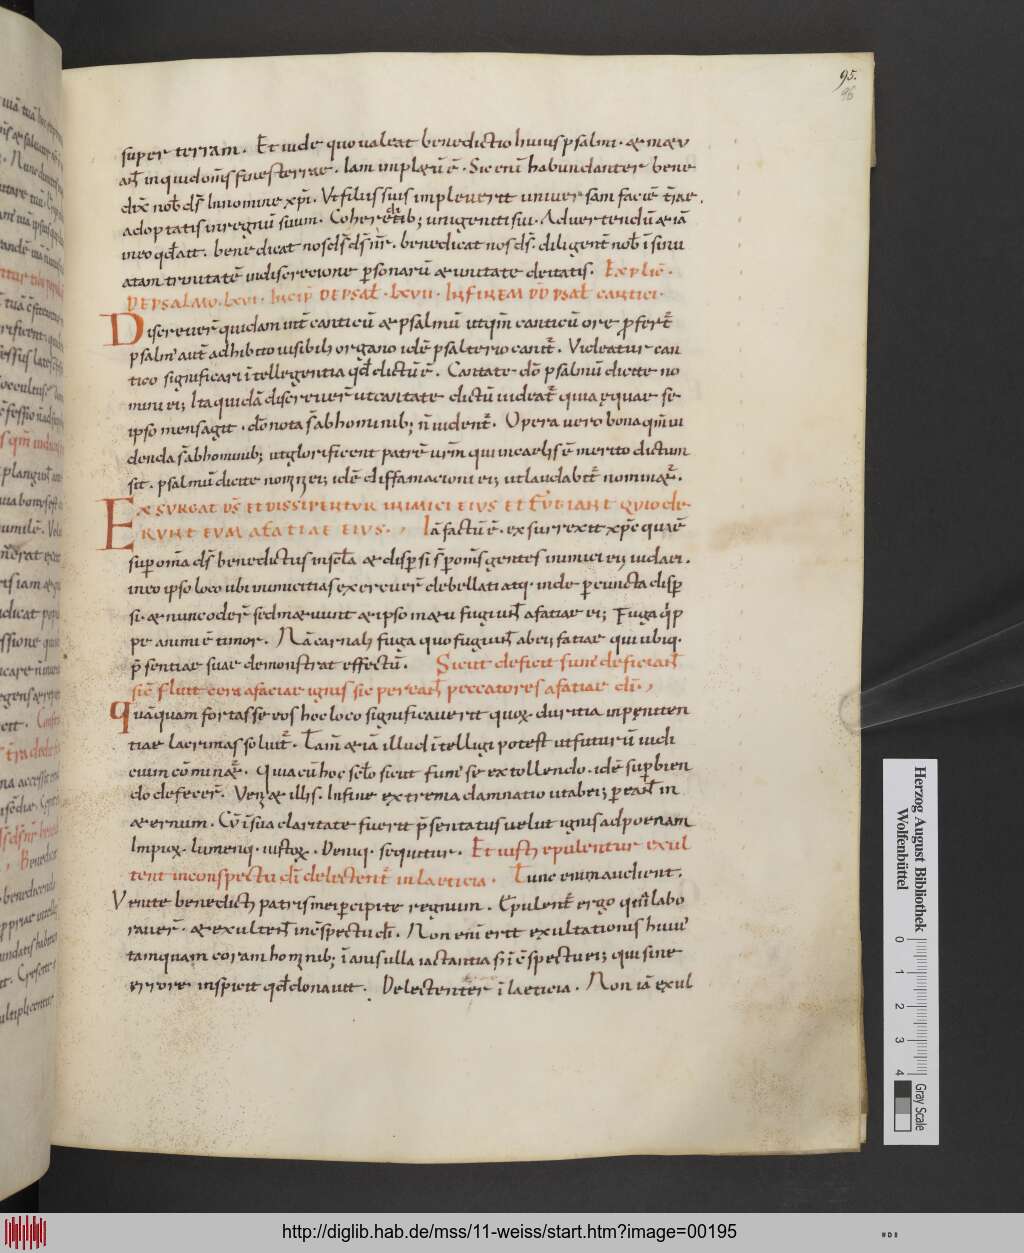 95.
96
super terram. Et uide quo ualeat benedictio huius psalmi. & mæu
ant inquid om̄s fines terrae. Iam implæū ē. Sic enī habundanter bene
dix nob d̄s In nomine xp̄i. Vt filiis suis impleuerit uniuersam faciē t̄rae.
adoptatis in regnū suum. Coheredib; unigeniti sui. Aduertendū & iā
in eo qd ait. benedicat nos d̄s d̄s nr̄. benedicat nos d̄s. diligent nob insinu
atam trinitatē indiscrecione p̱sonarū & unitate deitatis. Explic̄.
DE PSALMO. LXVI. Incip̄ DE PSAL. LXVII. IN FINEM D̄D PSAL cantici.
Discreuer̄ quidam int̄ canticū & psalmū utqm̄ canticū ore p̱fert̄
psalm' aut̄ adhibito uisibili organo idē psalterio cant̄. Videatur can
tico significari intellegentia qd dictū ē. Cantate dō psalmū dicite no
mini ei; Ita quidā discreuer̄ ut cantate dictū uideat̄ quia ea quae se
ipso mens agit. dō nota s̄ ab hominib; n̄ uident̄. Opera uero bona qm̄ ui
denda s̄ ab hominib; ut glorificent patrē ur̄m qui in caelis ē merito dictum
sit. psalmū dicite nomini ei; idē diffamacioni ei; ut laudabilit̄ nominǣ.
EXSURGAT D̄S ET DISSIPENTUR INIMICI EIUS ET FUGIANT QUI ODE
RUNT EUM A FATIAE EIUS., Iā factū ē. exsurrexit xp̄c qui ē
sup om̄a d̄s benedictus in scl̄a & disp̱si s̄ p om̄s gentes inimici ei; iudaei.
in eo ipso loco ubi inimicitias exercuer̄ debellati atq. inde p cuncta disp̱
si. & nunc oder̄ sed mæuunt & ipso mæu fugiunt a fatiae ei; Fuga q̄pp̱
pe animi ē timor. Nā carnali fuga quo fugiunt ab ei; fatiae qui ubiq.
p̄sentiae suae demonstrat effectū. Sicut deficit fum' deficiant
sic̄ fluit cera a faciae ignis sic pereant peccatores a fatiae d̄i.,
quāquam fortasse eos hoc loco significauerit quox. duritia in penitten
tiae lacrimas soluit̄. Tam̄ & iā illud intelligi potest ut futurū iudi
cium cōminǣ. Quia cū hoc sclo sicut fum' se extollendo. idē supbien
do defecer̄. Veni& illis. In fine extrema damnatio ut ab ei; p eant in
æternum. Cū in sua claritate fuerit p̄sentatus uelut ignis ad poenam
Impiox. lumenq. iustox. Deniq. sequitur. Et iusti epulentur exul
tent in conspectu d̄i delectent̄ in laeticia. Tunc enim audient.
Venite benedicti patris mei p cipite regnum. Epulent̄ ergo qui labo
rauer̄. & exultent in c̄spectu d̄i. Non enī erit exultationis huius
tamquam coram hominib; inanis ulla iactantia s; in c̄spectu ei; qui sine
errore inspicit qd donauit. Delectenter in laeticia. Non iā exul
Herzog August Bibliothek
Wolfenbüttel
0 1 2 3 4
Gray Scale
http://diglib.hab.de/mss/11-weiss/start.htm?image=00195